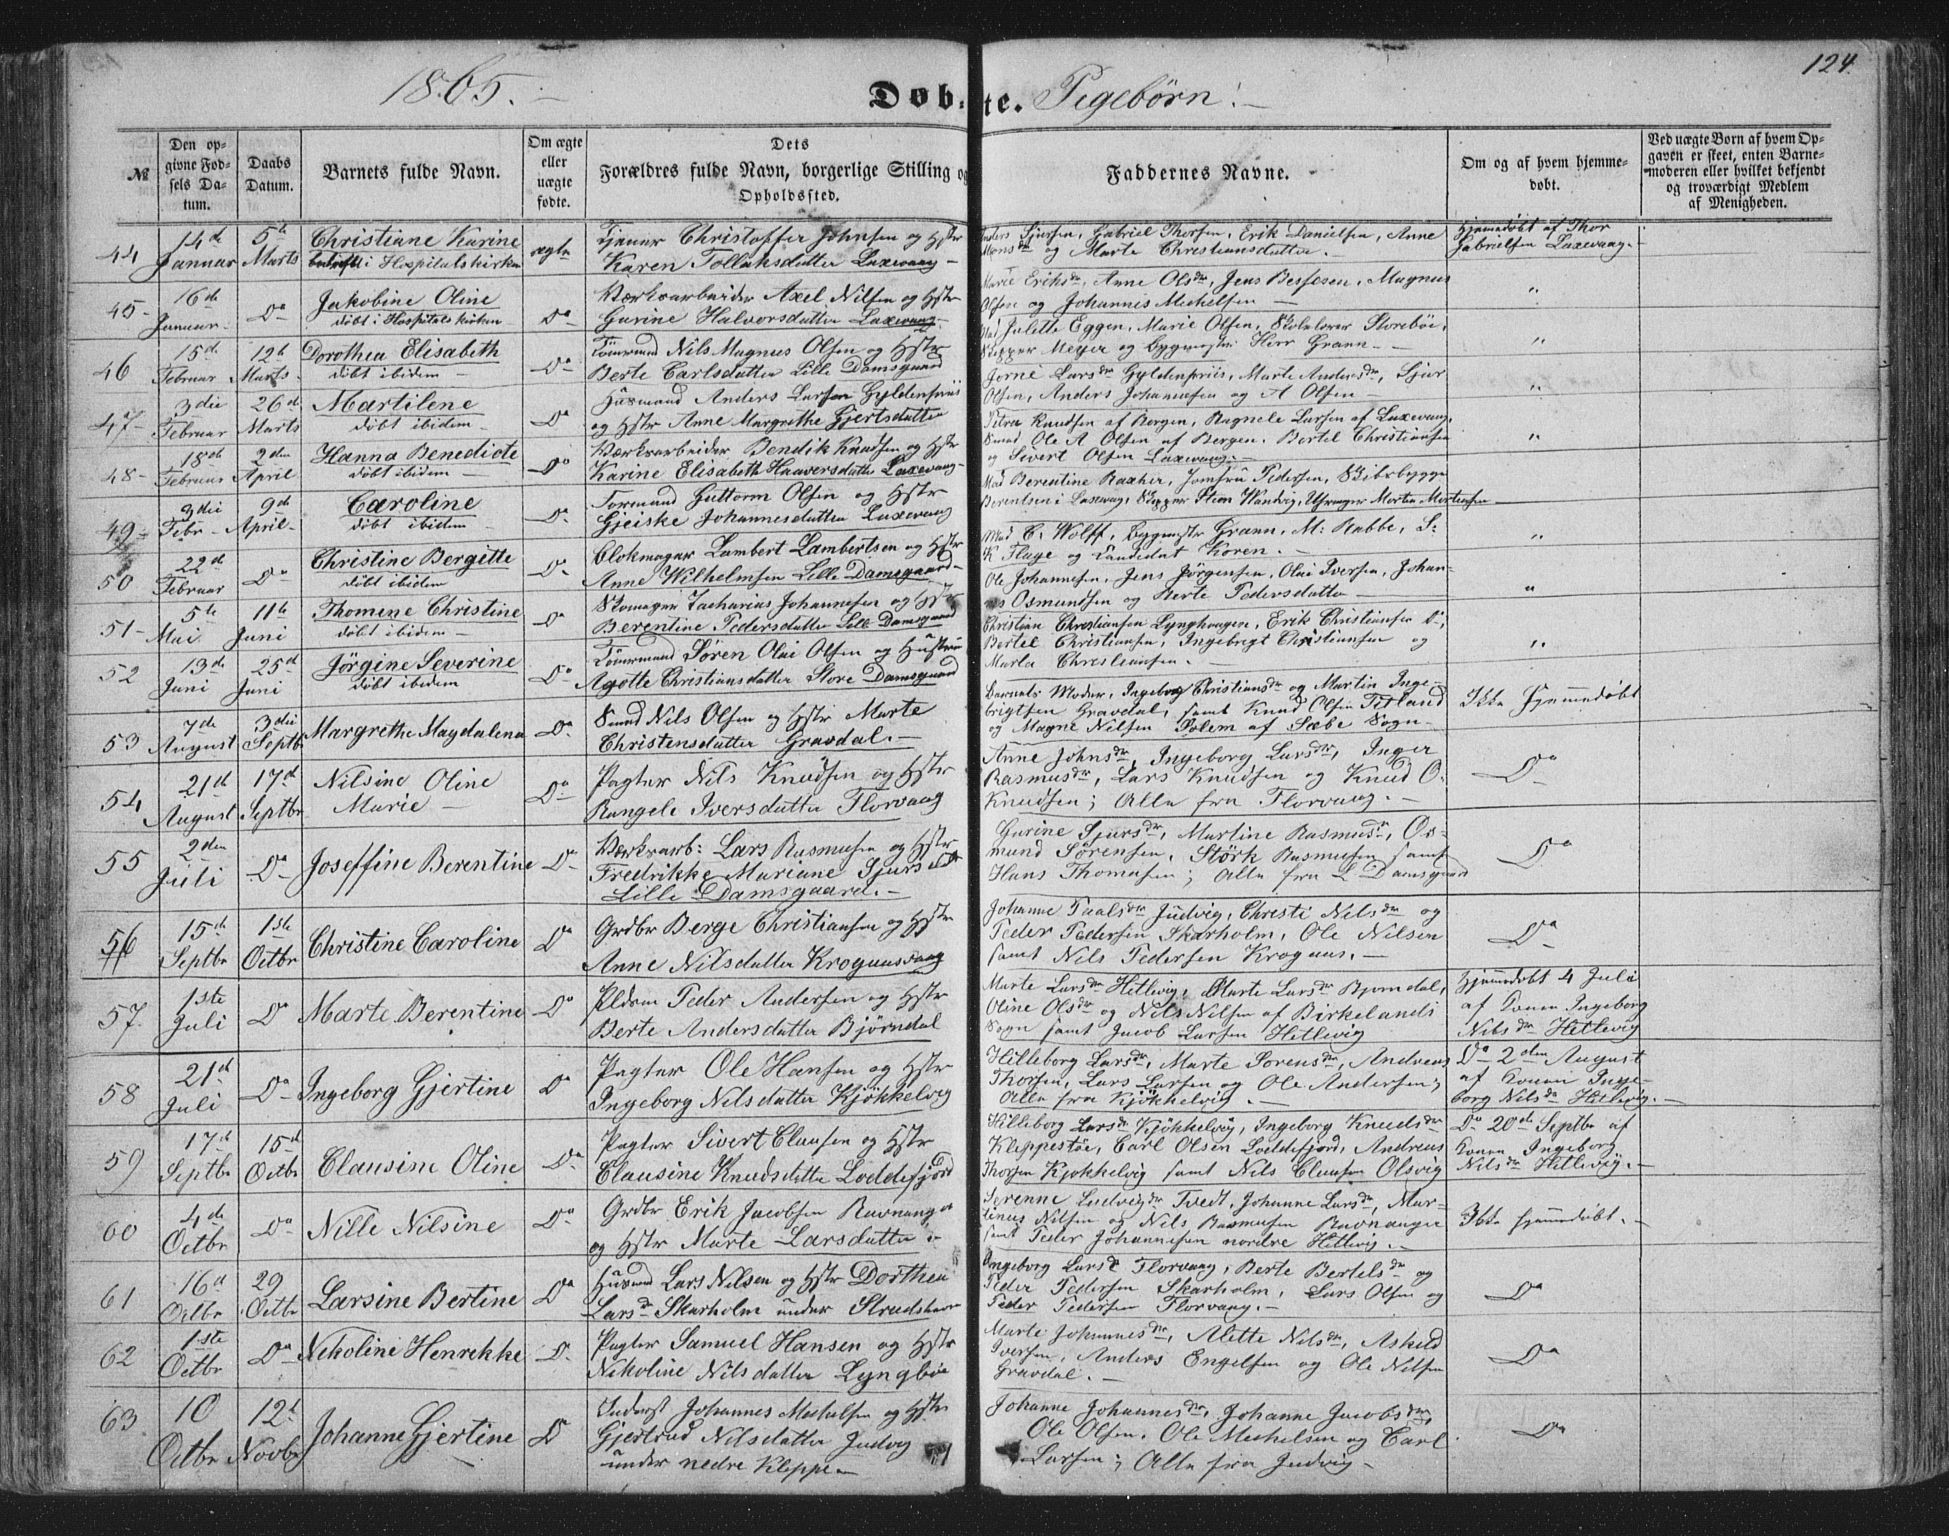 1865.
Døbte. Pigebørn.
124.
№
Den opgivne Fødsels Datum.
Daabs Datum.
Barnets fulde Navn.
Om ægte eller uægte fødte.
Dets Forældres fulde Navn, borgerlige Stilling og Opholdssted.
Faddernes Navne.
Om og af hvem hjemmedøbt.
Ved uægte Børn af hvem Opgaven er skeet, enten Barnemoderen eller hvilket bekjendt og troværdigt Medlem af Menigheden.
44 14de Januar 5te Marts Christiane Karine i Hospitalskirken ægte
Christoffer Johnsen og Hstr
Karen Tollaksdatter Laxevaag
Gabriel Thorsen, Erik Danielsen, Anne
og Marte Christiansdatter.
Hjemmedøbt af Thor
Gabrielsen Laxevaag.
45 16de Januar Do Jakobine Oline døbt i Hospitalskirken Do
Værksarbeider Axel Nilsen og Hstr
Gurine Halvorsdatter Laxevaag
Marie Eriksdr, Anne Olsdr, Jens Besfesen, Magnus
Olsen og Johannis Mickelsen
"
46 15de Februar 12te Marts Dorothea Elisabeth døbt ibidem Do
Tømrmand Nils Magnus Olsen og Hstr
Berte Carlsdatter Lille Damsgaard
Mad Julette Eggen, Marie Olsen, Skolelærer Storebøe,
Skipper Meyer og Bygmester Herr Grann.
"
47 3die Februar 26de Marts Martilene døbt ibidem Do
Huusmand Anders Larsen Gyldenpriis
og Hstr Anne Margrethe Gjertsdatter
Jorne Larsdr Gyldenpriis, Marte Andersdr, Sjur
Olsen, Anders Johannesen og A Olsen
"
48 18de Februar 2den April Hanna Benedicte døbt ibidem Do
Værksarbeider Bendik Knudsen og Hstr
Karine Elisabeth Haaversdatter Laxevaag
Petra Knudsen af Bergen, Ragnele Larsen af Laxevaag,
Smed Ole A Olsen af Bergen. Bertel Christiansen
og Sivert Olsen Laxevaag.
"
49 3die Febr 9de April Caroline døbt ibidem Do
Tormand Guttorm Olsen og Hstr
Gjeiske Johannesdatter Laxevaag
Mad Berentine Raxher, Jomfru Pedersen, Skibsbygge
Berentsen i Laxevaag, Skipper Steen Wandvig, Morten Mortensen
50 22de Februar Do Christine Bergitte døbt ibidem Do
Blokmager Lambert Lambertsen og Hstr
Anne Wilhelmsen Lille Damsgaard
Mad C. Wolff, Bygmester Grann, M. Rabbe, S.
K Flage og Candidat Koren.
"
51 5te Mai 11te Juni Thomine Christine døbt ibidem Do
Skomager Zacharias Johannesen og Hstr
Berentine Pedersdatter Lille Damsgaard
Ole Johannesen, Jens Jørgensen, Olai Iversen, Johannes Osmundsen og Berte Pedersdatter
"
52 13de Juni 25de Juni Jørgine Severine døbt ibidem Do
Tømrmand Søren Olai Olsen og Hustru
Agotte Christiansdatter Store Damsgaard
Christian Christiansen Lynghougen, Erik Christiansen
Bertel Christiansen, Ingebregt Christiansen og
Marta Christiansen.
"
53 7de August 3die Septbr Margrethe Magdalena Do
Smed Nils Olsen og Hstr Marte
Christensdatter Gravdal.
Barnets Moder, Ingeborg Christiansdr og Martin Ingebrigtsen Gravdal, samt Knud Olsen Titland
og Magne Nilsen Solem af Sæbe Sogn
Ikke Hjemmedøbt
54 21de August 17de Septbr Nilsine Oline Marie Do
Pagter Nils Knudsen og Hstr
Rangele Iversdatter Florvaag
Anne Johnsdr, Ingeborg Larsdr, Inger
Rasmusdr, Lars Knudsen og Knud O.
Knudsen; Alle fra Florvaag.
Do
55 2den Juli Do Joseffine Berentine Do
Værksarb: Lars Rasmusen og Hstr
Fredrikke Mariane Sjursdtr
Lille Damsgaard.
Gurine Sjursdr, Martine Rasmusdr, Osmund Sørensen, Størk Rasmusen samt
Hans Thomasen; Alle fra L Damsgaard
Do
56 15de Septbr 1ste Octbr Christine Caroline Do
Grdbr Berge Christiansen og Hstr
Anne Nilsdatter Krogaasvaag
Johanne Paalsdr Judvig, Christi Nilsdr og
Peder Pedersen Skarholm, Ole Nilsen
samt Nils Pedersen Krogaas.
Do
57. 1ste Juli Do Marte Berentine Do
Pldsm Peder Andersen og Hstr
Berte Andersdatter Bjørndal
Marte Larsdr Hetlevig, Marte Larsdr Bjørndal,
Oline Olsdr og Nils Nilsen af Birkelands
Sogn samt Jacob Larsen Hetlevig
Hjemmedøbt 4 Juli
af Konen Ingeborg
Nilsdr Hetlevig
58 21de Juli Do Ingeborg Gjertine Do
Pagter Ole Hansen og Hstr
Ingeborg Nilsdatter Kjøkkelvig
Hilleborg Larsdr, Marte Sørensdr, Andreas
Thorsen, Lars Larsen og Ole Andersen;
Alle fra Kjøkkelvig.
Do 2den August
af Konen Ingeborg Nilsdr Hetlevig.
59 17de Septbr 15de Octbr Clausine Oline Do
Pagter Sivert Clausen og Hstr
Clausine Knudsdatter Loddefjord
Hilleborg Larsdr Kjøkkelvig, Ingeborg Knudsdr
Kleppestøe, Carl Olsen Loddefjord, Andreas
Thorsen Kjøkkelvig samt Nils Clausen Olsvig
Do 20de Septbr af
Konen Ingeborg
Nilsdr Hetlevig.
60 4de Octbr Do Nille Nilsine Do
Grdbr Erik Jacobsen Ravnanger
og Hstr Marte Larsdatter
Serenne Ludvigsdr Tvedt, Johanne Larsdr, Martinus Nilsen og Nils Rasmusen Ravnanger
samt Peder Johannesen nordre Hetlevig.
Ikke hjemmdøbt.
61 16de Octbr 29 Octbr Larsine Bertine Do
Huusmd Lars Nilsen og Hstr Dorthea
Larsdr Skarholm under Strudshavn
Ingeborg Larsdr Florvaag, Berte Bertelsdr og
Peder Pedersen Skarholm, Lars Olsen og
Peder Pedersen Florvaag.
Do
62 1ste Octbr Do Nikoline Henrikke Do
Pagter Samuel Hansen og Hstr
Nikoline Nilsdatter Lyngbøe
Marte Johannesdr, Alette Nilsdr, Askild
Iversen, Anders Engelsen og Ole Nilsen
Gravdal.
Do
63 10 Octbr 12te Novbr Johanne Gjertine Do
Inderst Johannes Mickelsen og Hstr
Gjertrud Nilsdatter Judvig
under nedre Kleppe
Johanne Johannesdr, Johanne Jacobsdr,
Ole Olsen, Ole Mickelsen og Carl
Larsen; Alle fra Judvig
Do